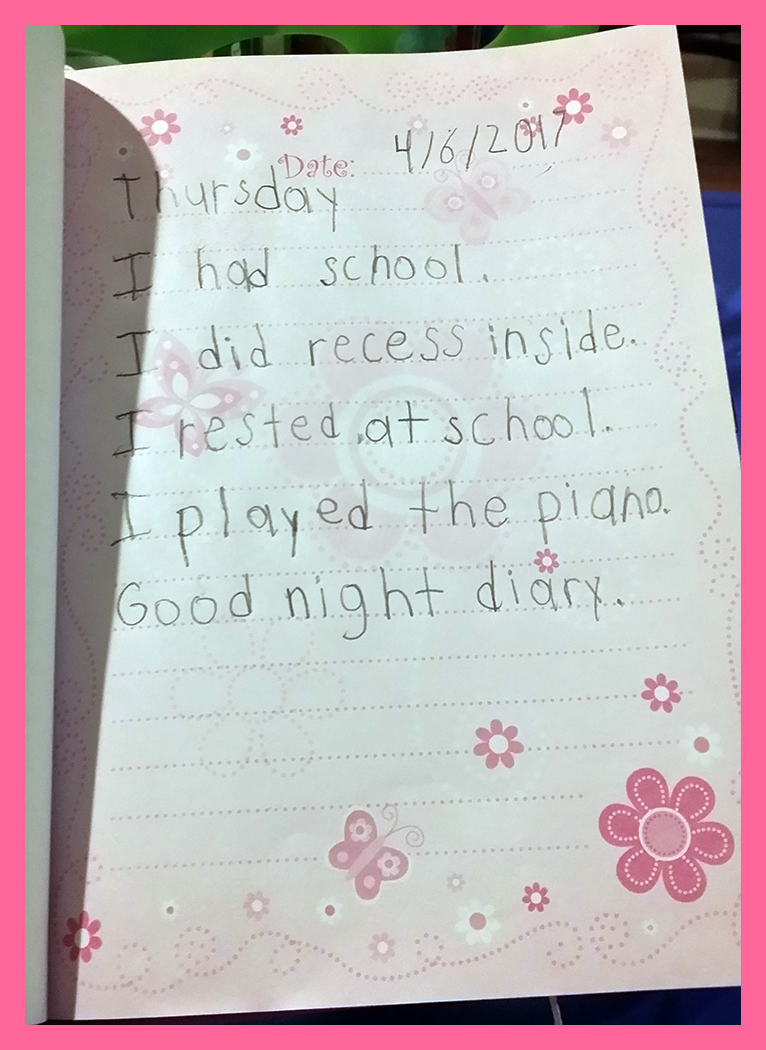 Date: 4/6/2017
Thursday
I had school.
I did recess inside.
I rested at school.
I played the piano.
Good night diary.